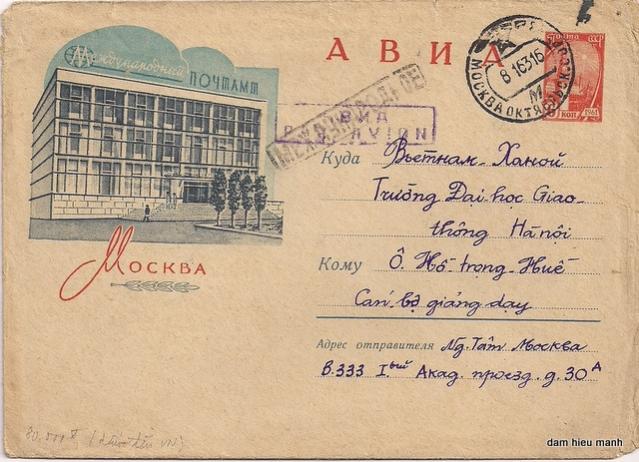 Международный
ПОЧТАМТ
АВИА
ПОЧТА СССР
КОП
1961
8 1 63 16
МОСКВА ОКТЯБРЬСК.
МЕЖДУНАРОДНОЕ
АВИА
PAR AVION
Куда Вьетнам - Ханой
Trường Đại học Giao-
thông Hà nội
Кому Ô. Hồ trọng Huế
Cán bộ giảng dạy
Адрес отправителя Ng. Tâm Москва
В.333 Iый Акад. проезд. д. 30А
Москва
dam hieu manh